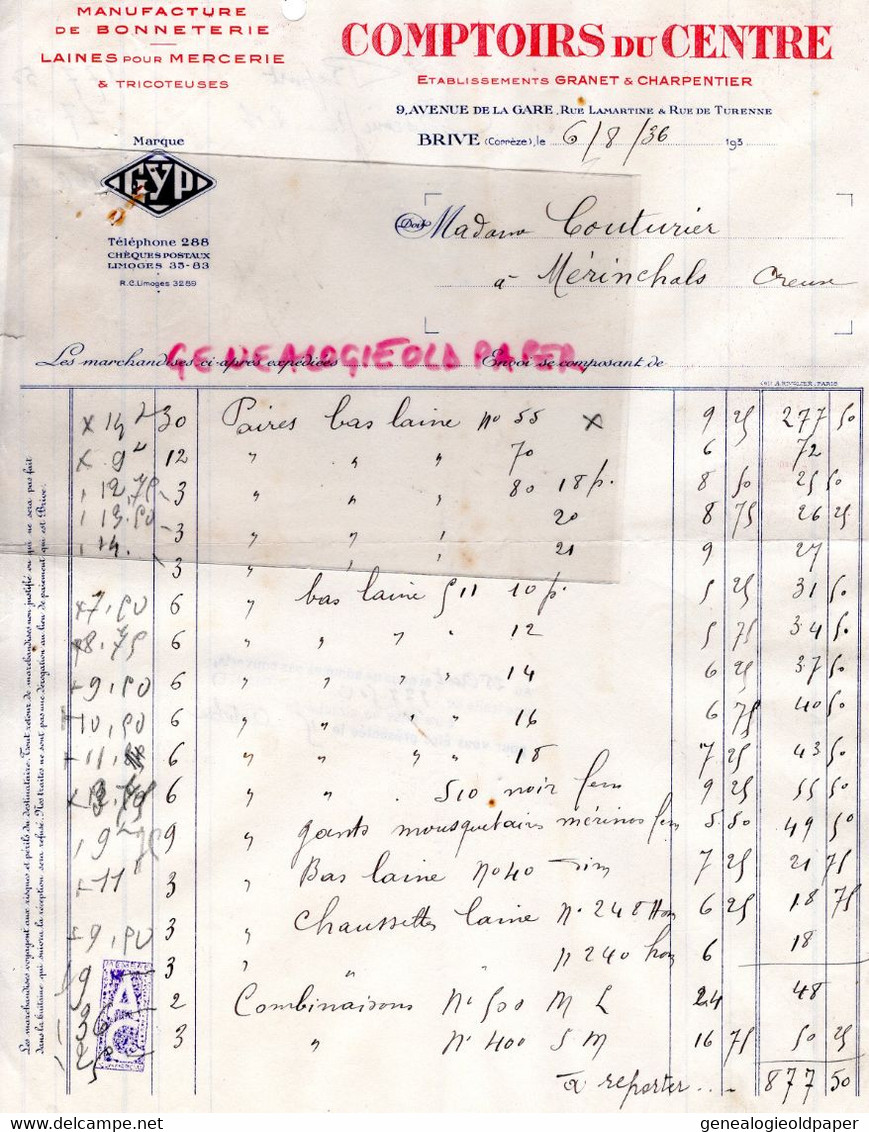 MANUFACTURE
DE BONNETERIE
LAINES POUR MERCERIE
& TRICOTEUSES
COMPTOIRS DU CENTRE
ETABLISSEMENTS GRANET & CHARPENTIER
9, AVENUE DE LA GARE, RUE LAMARTINE & RUE DE TURENNE
BRIVE (Corrèze), le 6/8/36 193
Marque
GYP
Téléphone 288
CHÈQUES POSTAUX
LIMOGES 35-83
R.C. Limoges 3289
Doit Madame Couturier
à Mérinchals Creuse
GENEALOGIEOLD PAPER
Les marchandises ci-après expédiées Envoi se composant de
x 14 30 Paires bas laine no 55 x 9 25 277 50
x 9 12 " " " 70 6 72
12,75 3 " " " 80 18 p. 8 50 25 50
13.50 3 " " " 20 8 75 26 25
14. 3 " " " 21 9 27
7,50 6 " bas laine 511 10 p. 5 25 31 50
8.75 6 " " " " 12 5 75 34 50
9,50 6 " " " " 14 6 25 37 50
10,50 6 " " " " 16 6 75 40 50
11 6 " " " " 18 7 25 43 50
6 " " 510 noir fem 9 25 55 50
9 9 " gants mousquetairs mérinos fem 5.50 49 50
11 3 " Bas laine No 40 7 25 21 75
9,50 3 " Chaussettes laine No 248 Hom 6 25 18 75
9 3 " " " No 240 hom 6 18
36 2 Combinaisons No 500 M L 24 48
25 3 " No 400 S M 16 75 50 25
à reporter ... 877 50
Les marchandises voyagent aux risques et périls du destinataire. Tout retour de marchandises non justifié ou qui ne sera pas fait
dans la huitaine qui suivra la réception sera refusé. Nos traites ne sont pas une dérogation au lieu de paiement qui est Brive.
genealogieoldpaper